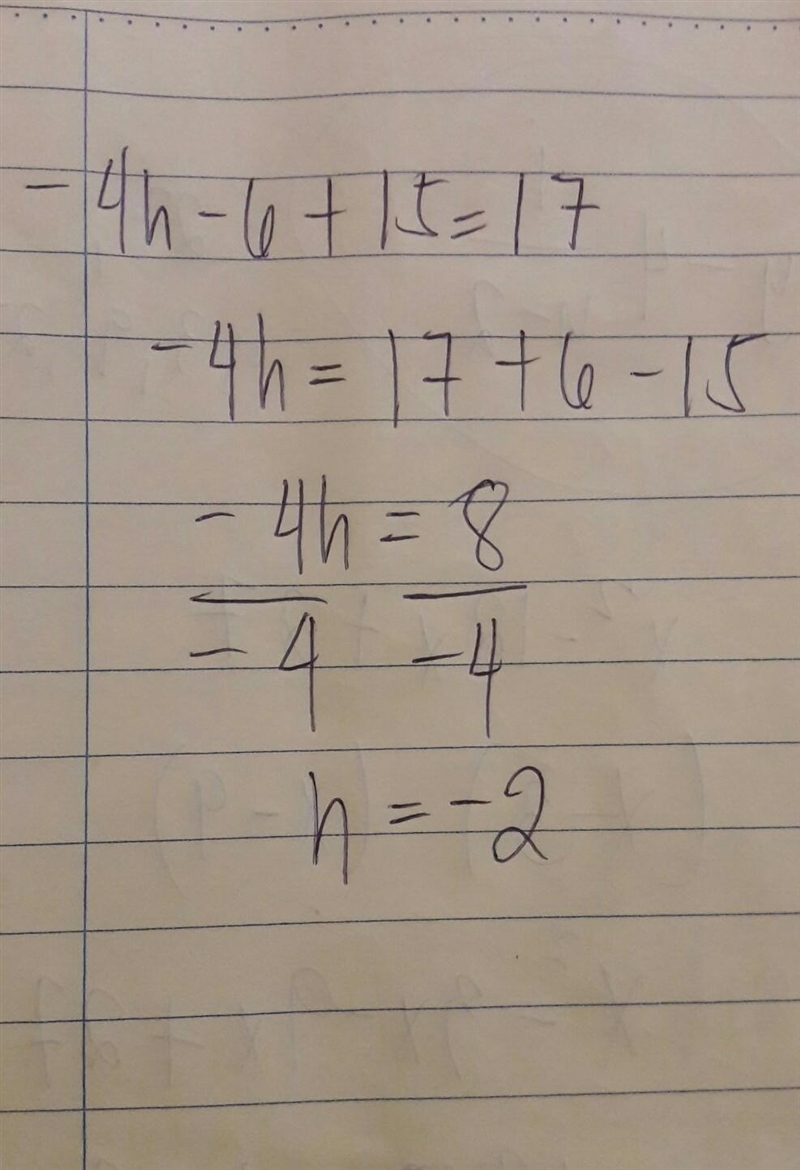 -4h-6+15=17
-4h=17+6-15
-4h=8
-4 -4
h=-2